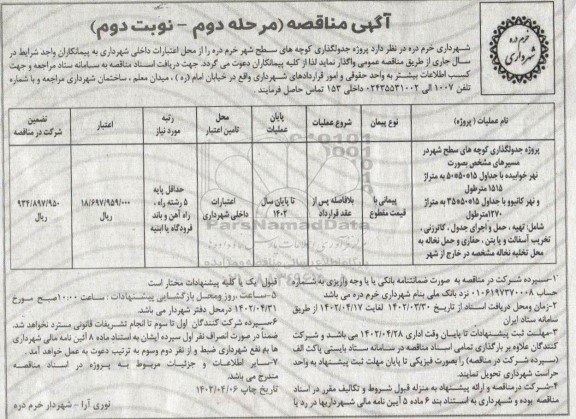 آگهی مناقصه (مرحله دوم – نوبت دوم)
خرم دره
شهرداری
شهرداری خرم دره در نظر دارد پروژه جدولگذاری کوچه های سطح شهر خرم دره را از محل اعتبارات داخلی شهرداری به پیمانکاران واجد شرایط در
سال جاری از طریق مناقصه عمومی واگذار نماید لذا از کلیه پیمانکاران دعوت می گردد. جهت دریافت اسناد مناقصه به سامانه ستاد مراجعه و جهت
کسب اطلاعات بیشتر به واحد حقوقی و امور قراردادهای شهرداری واقع در خیابان امام (ره) ، میدان معلم ، ساختمان شهرداری مراجعه و با شماره
تلفن ۱۰۰۷ الی ۰۲۴۳۵۵۳۱۰۰۲ داخلی ۱۵۳ تماس حاصل فرمایند .
نام عملیات ( پروژه) | نوع پیمان | شروع عملیات | پایان عملیات | محل تامین اعتبار | رتبه مورد نیاز | اعتبار | تضمین شرکت در مناقصه
پروژه جدولگذاری کوچه های سطح شهر در
مسیرهای مشخص بصورت
نهر خوابیده با جداول ۱۵*۵۰*۵۰ به متراژ
۱۵۱۵ مترطول
و نهر کانیوو با جداول ۱۵*۵۰*۳۵ به متراژ
۱۲۷۰مترطول
شامل: تهیه ، حمل و اجرای جدول ، کانرزنی ،
تخریب آسفالت و یا بتن ، حفاری و حمل نخاله به
محل تخلیه نخاله مشخصه در خارج از شهر
پیمانی با
قیمت مقطوع
بلافاصله پس از
عقد قرارداد
تا پایان سال
۱۴۰۲
اعتبارات
داخلی شهرداری
حداقل پایه
۵ رشته راه ،
راه آهن و باند
فرودگاه یا ابنیه
۱۸/۶۹۷/۹۵۹/۰۰۰
ریال
۹۳۴/۸۹۷/۹۵۰
ریال
ParsNamadData
۱-سپرده شرکت در مناقصه به صورت ضمانتنامه بانکی یا با وجه واریزی به شماره
حساب ۰۱۰۶۱۹۷۳۷۰۰۰۸ نزد بانک ملی بنام شهرداری خرم دره می باشد
۲-زمان ومحل دریافت اسناد از تاریخ ۱۴۰۲/۰۳/۳۰ لغایت ۱۴۰۲/۰۴/۱۷ از طریق
سامانه ستاد ایران
۳-مهلت ثبت پیشنهادات تا پایان وقت اداری ۱۴۰۲/۰۴/۲۸ می باشد و شرکت
کنندگان علاوه بر بارگذاری تمامی اسناد مناقصه در سامانه ستاد بایستی پاکت الف
(سپرده شرکت در مناقصه) را بصورت فیزیکی تا پایان مهلت ثبت پیشنهاد به واحد
حراست شهرداری تحویل نمایند.
۴-شرکت درمناقصه و ارائه پیشنهاد به منزله قبول شروط و تکالیف مقرر در اسناد
مناقصه بوده و شهرداری به استناد بند ۶ ماده ۵ آیین نامه مالی شهرداریها در رد یا
قبول یک یا کلیه پیشنهادات مختار است
۵-ساعت ،روز ومحل بازگشایی پیشنهادات : ساعت ۱۰:۰۰صبح مورخ
۱۴۰۲/۰۴/۳۱ درمحل دفتر شهردار می باشد.
۶-سپرده شرکت کنندگان اول تا سوم تا انجام تشریفات قانونی مسترد نخواهد شد.
ضمناً در صورت انصراف نفر اول سپرده ایشان به استناد ماده ۸ آئین نامه مالی شهرداری
ها به نفع شهرداری ضبط و از نفر دوم وسوم به ترتیب دعوت به عمل خواهد آمد.
۷-سایر اطلاعات و جزئیات مربوط به پروژه در اسناد مناقصه
مندرج می باشد.
تاریخ چاپ ۱۴۰۲/۰۴/۰۶
نوری آرا - شهردار خرم دره